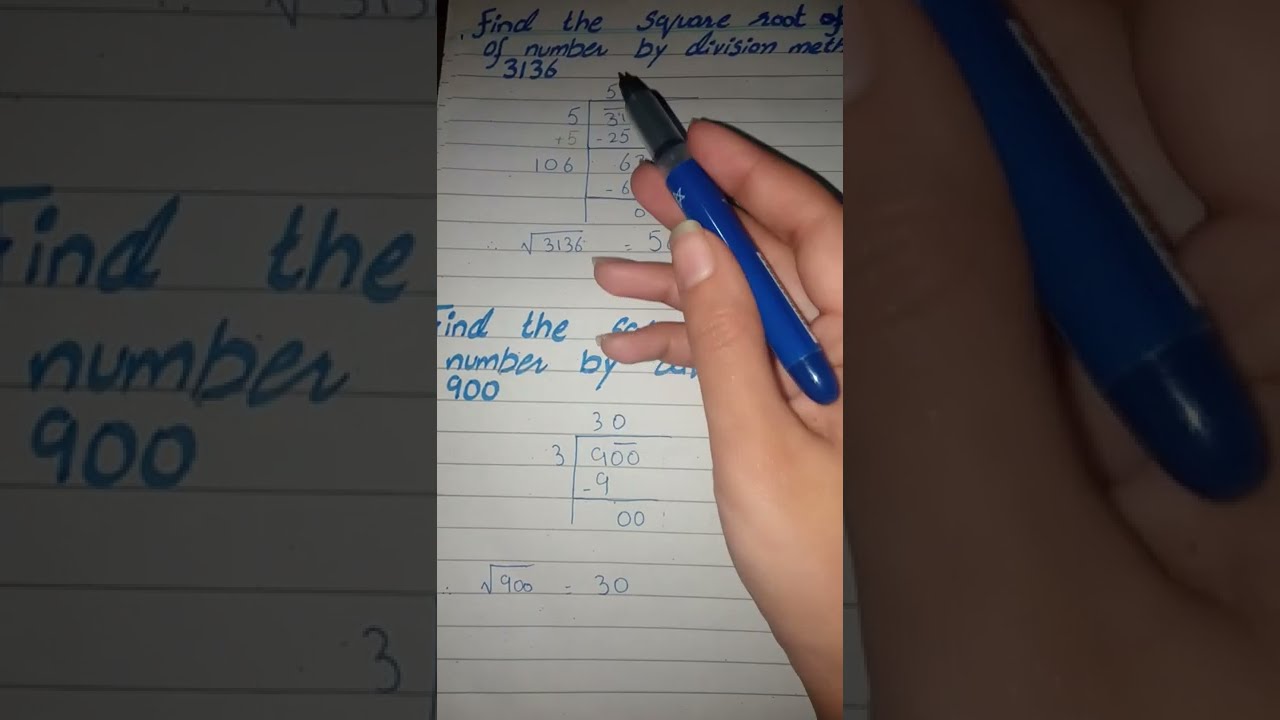 √3136
Find the square root of
of number by division meth
3136
5
5 31
+5 -25
106 63
-6
0
∴ √3136 = 5
Find the
number by
900
30
3 900
-9
00
∴ √900 = 30
Find the
number
900
3